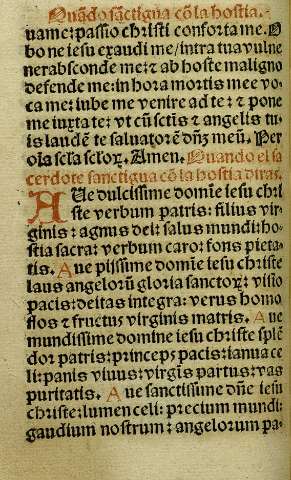 Quãdo sãctigua cõ la hostia.
uame: passio christi conforta me. O
bo ne iesu exaudi me/intra tua vulne
nera bsconde me: ⁊ ab hoste maligno
defende me: in hora mortis mee vo
ca me: iube me venire ad te: ⁊ pone
me iuxta te: vt cũ sctis ⁊ angelis tu
is laudẽ te saluatorẽ dñz meũ. Per
oĩa scĩa scĩoꝝ. Amen. Quando el sa
cerdote sanctigua cõ la hostia diras.
AUe dulcissime domĩe iesu chri
ste verbum patris: filius vir
ginis: agnus dei: salus mundi: ho
stia sacra: verbum caro: fons pieta
tis. Aue pijssime domĩe iesu christe
laus angelorũ gloria sanctoꝝ: visiõ
pacis: deitas integra: verus homo
flos ⁊ fructus virginis matris. Aue
mundissime domine iesu christe splẽ
dor patris: princeps pacis: ianua ce
li: panis viuus: virgĩs partus: vas
puritatis. Aue sanctissime dñe iesu
christe: lumen celi: precium mundi:
gaudium nostrum: angelorum pa-